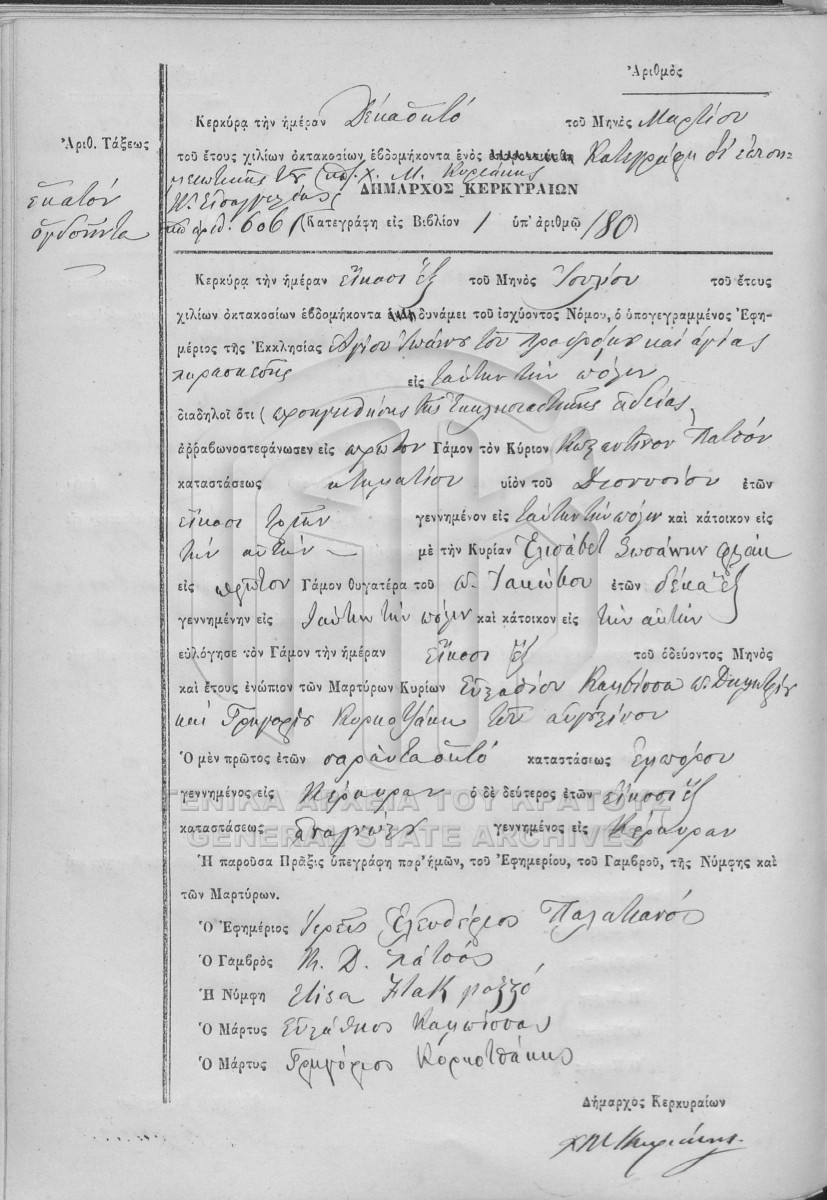 Ἀριθμὸς
Ἀριθ. Τάξεως
ἑκατόν
ὀγδοῆντα
Κερκύρᾳ τὴν ἡμέραν Δέκα ὀκτὸ τοῦ Μηνὸς Μαρτίου
τοῦ ἔτους χιλίων ὀκτακοσίων ἑβδομήκοντα ἑνὸς Κατεγράφη
Χ. Μ. Κυριάκης
ΔΗΜΑΡΧΟΣ ΚΕΡΚΥΡΑΙΩΝ
Κ. Εἰσαγγελέας
ἀριθ. 606 (Κατεγράφη εἰς Βιβλίον 1 ὑπ' ἀριθμῷ 180)
Κερκύρᾳ τὴν ἡμέραν εἴκοσι ἕξ τοῦ Μηνὸς Ἰουλίου τοῦ ἔτους
χιλίων ὀκτακοσίων ἑβδομήκοντα δυνάμει τοῦ ἰσχύοντος Νόμου, ὁ ὑπογεγραμμένος Ἐφη-
μέριος τῆς Ἐκκλησίας Ἁγίου Ἰωάννου τοῦ Προδρόμου καὶ ἁγίας
παρασκεβῆς εἰς ταύτην τὴν πόλιν
διαδηλοῖ ὅτι (προηγηθήσης τῆς Ἐκκλησιαστικῆς ἀδείας)
ἀῤῥαβωνοστεφάνωσεν εἰς πρῶτον Γάμον τὸν Κύριον Κωσταντῖνον Πατσόν
καταστάσεως κτηματίου υἱὸν τοῦ Διονυσίου ἐτῶν
εἴκοσι τριῶν γεννημένον εἰς ταύτην τὴν πόλιν καὶ κάτοικον εἰς
τὴν αὐτὴν μὲ τὴν Κυρίαν Ἐλισάβετ Σωσάνην Φλάκ
εἰς πρῶτον Γάμον θυγατέρα τοῦ π. Ἰακώβου ἐτῶν δέκα ἕξ
γεννημένην εἰς ταύτην τὴν πόλιν καὶ κάτοικον εἰς τὴν αὐτὴν
εὐλόγησε τὸν Γάμον τὴν ἡμέραν εἴκοσι ἕξ τοῦ ὁδεύοντος Μηνὸς
καὶ ἔτους ἐνώπιον τῶν Μαρτύρων Κυρίων Εὐσταθίου Καμπίσσα π. Δημητρίου
καὶ Γρηγορίου Κορκοτζάκη τοῦ Αὐγουστίνου
Ὁ μὲν πρῶτος ἐτῶν σαράντα ὀκτὸ καταστάσεως Ἐμπόρου
γεννημένος εἰς Κέρκυραν ὁ δὲ δεύτερος ἐτῶν εἴκοσι ἕξ
καταστάσεως γεννημένος εἰς Κέρκυραν
ΓΕΝΙΚΑ ΑΡΧΕΙΑ ΤΟΥ ΚΡΑΤΟΥΣ
GENERAL STATE ARCHIVES
Ἡ παροῦσα Πρᾶξις ὑπεγράφη παρ' ἡμῶν, τοῦ Ἐφημερίου, τοῦ Γαμβροῦ, τῆς Νύμφης καὶ
τῶν Μαρτύρων.
Ὁ Ἐφημέριος Ἱερεὺς Ἐλευθέριος Παλατιανός
Ὁ Γαμβρὸς Κ. Δ. Πάτσος
Ἡ Νύμφη Elisa Flak
Ὁ Μάρτυς Εὐστάθιος Καμπίσσας
Ὁ Μάρτυς Γρηγόριος Κορκοτζάκης
Δήμαρχος Κερκυραίων
Χ Μ Κυριάκης